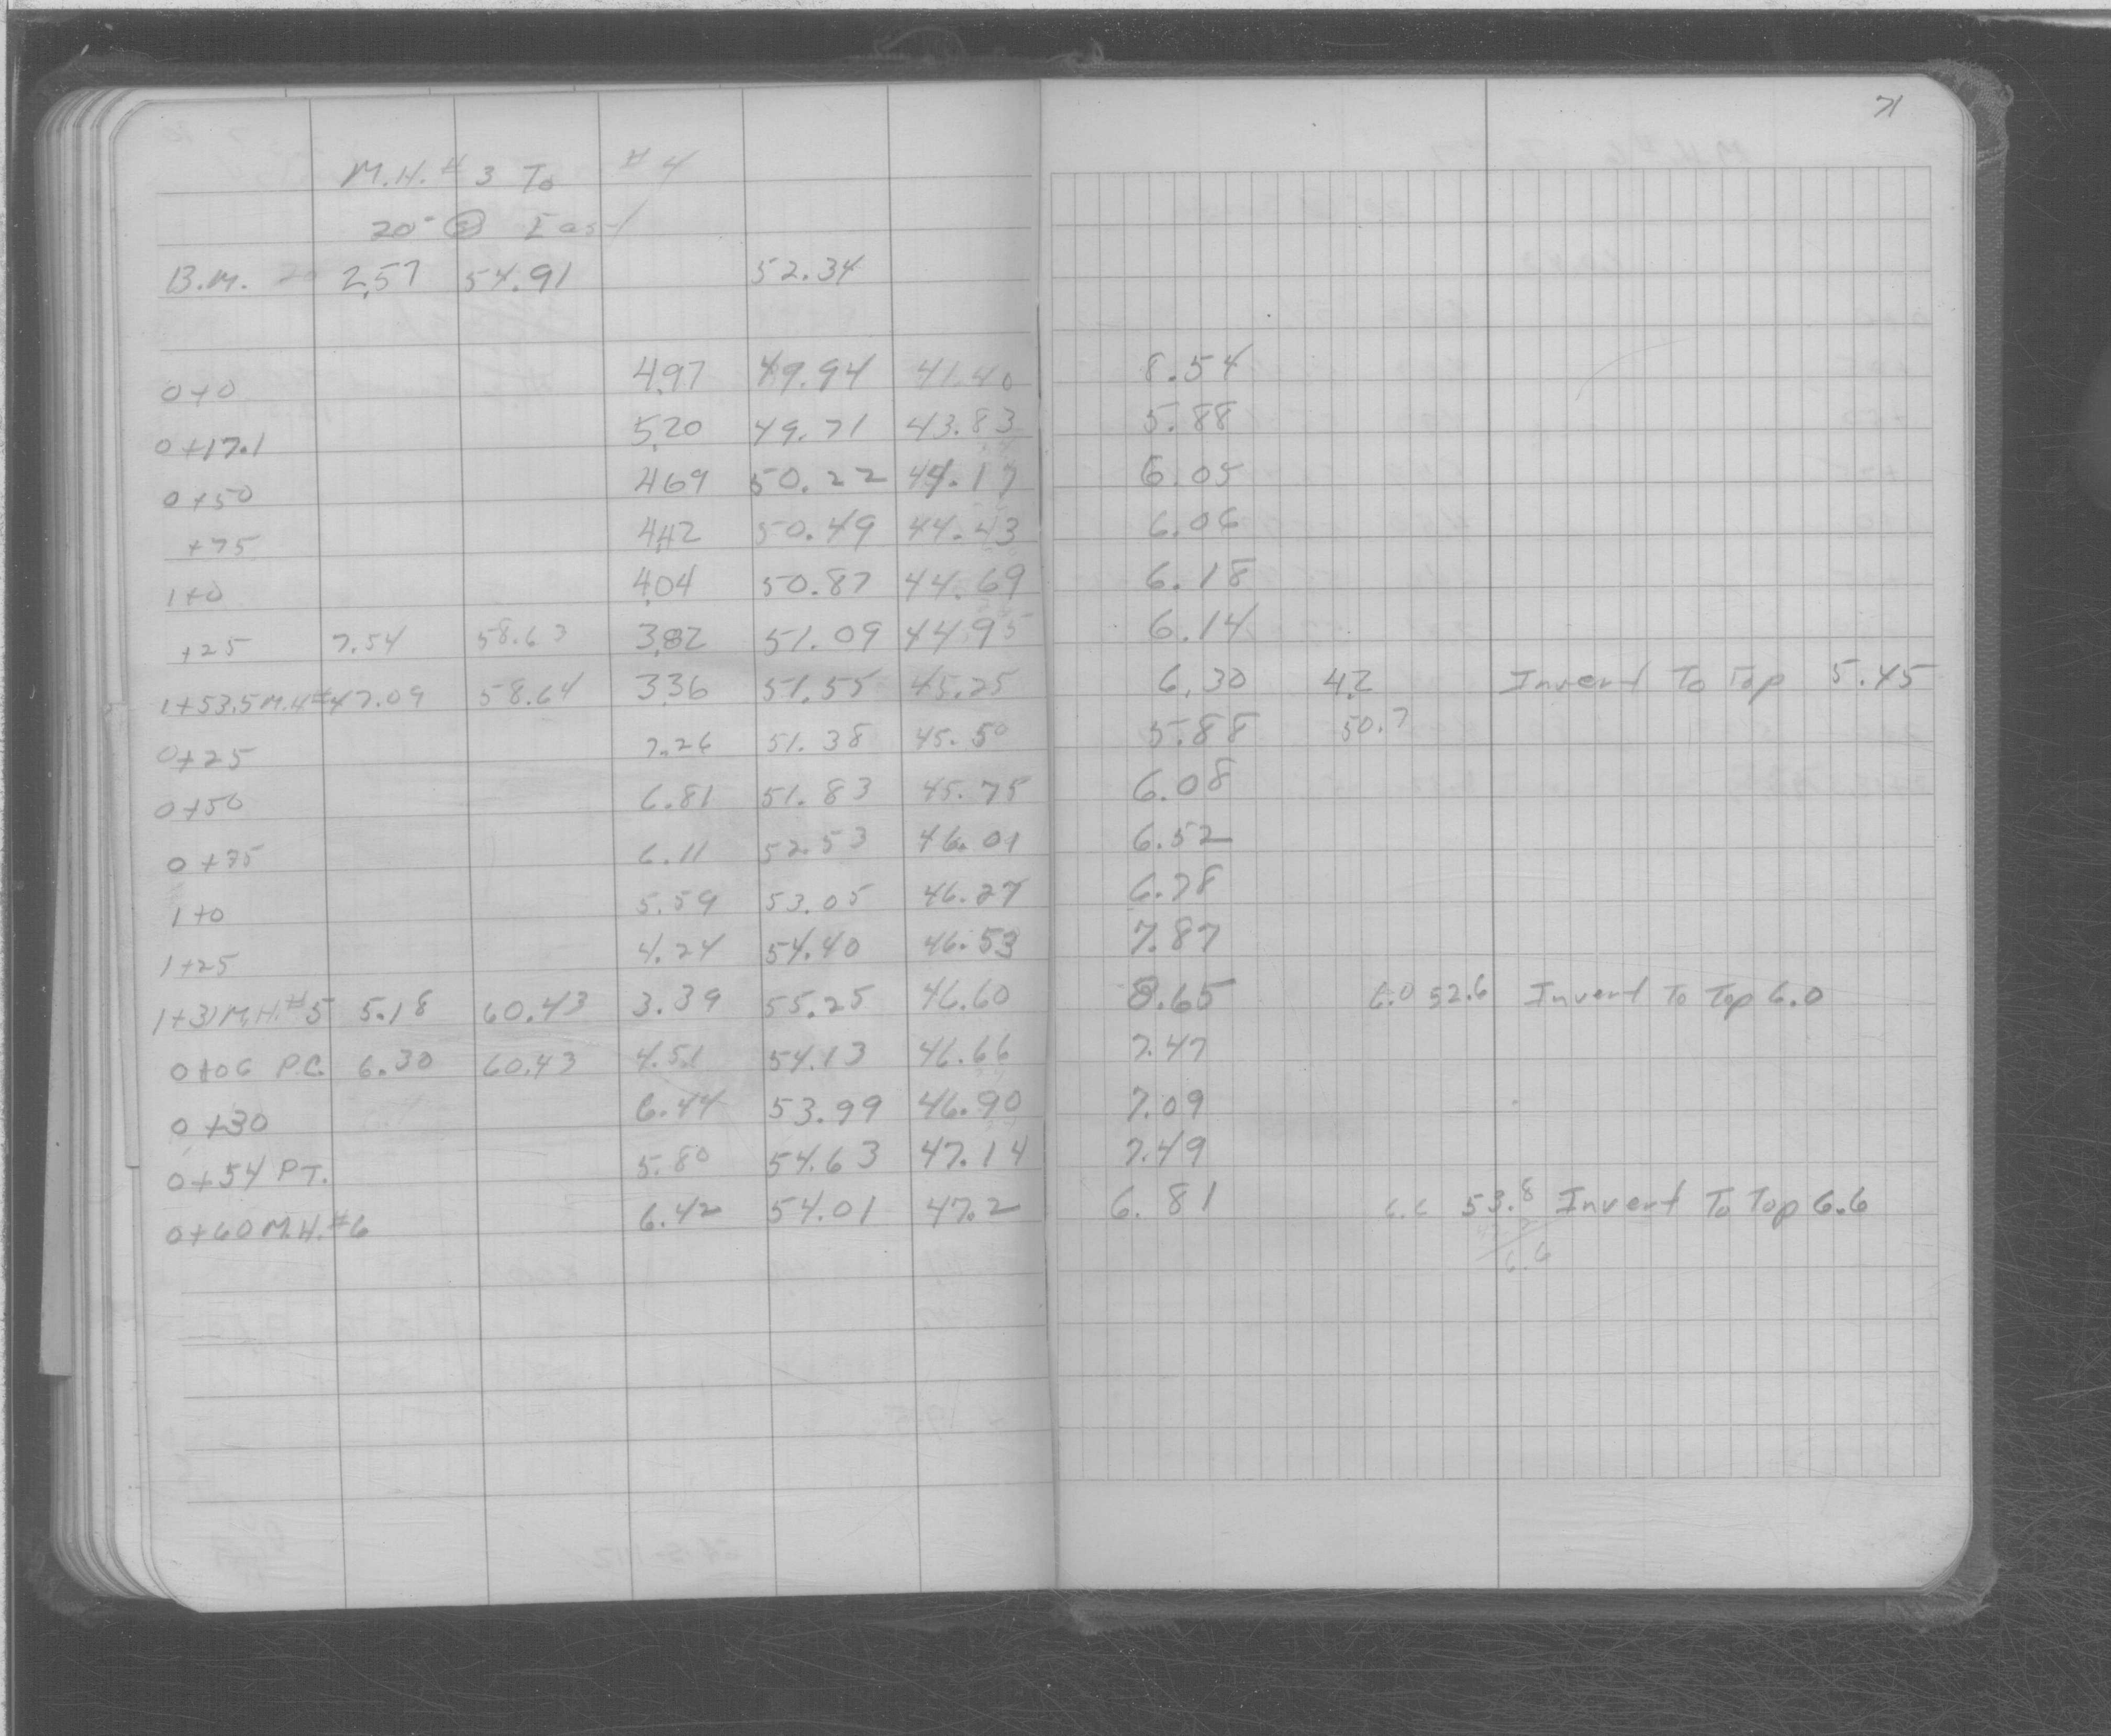 71
M.H. # 3 To # 4
20' @ East
B.M. 2.57 54.91 52.34
0+0 4.97 49.94 41.40 8.54
0+17.1 5.20 49.71 43.83 5.88
0+50 4.69 50.22 44.17 6.05
+75 4.42 50.49 44.43 6.06
1+0 4.04 50.87 44.69 6.18
+25 7.54 58.63 3.82 51.09 44.95 6.14
1+53.5 M.H.#4 7.09 58.64 3.36 51.55 45.25 6.30 4.2 Invert To Top 5.45
0+25 7.26 51.38 45.50 5.88 50.7
0+50 6.81 51.83 45.75 6.08
0+75 6.11 52.53 46.01 6.52
1+0 5.59 53.05 46.27 6.78
1+25 4.24 54.40 46.53 7.87
1+31 M.H.#5 5.18 60.43 3.39 55.25 46.60 8.65 6.0 52.6 Invert To Top 6.0
0+06 P.C. 6.30 60.43 4.51 54.13 46.66 7.47
0+30 6.44 53.99 46.90 7.09
0+54 P.T. 5.80 54.63 47.14 7.49
0+60 M.H.#6 6.42 54.01 47.2 6.81 6.6 53.8 Invert To Top 6.6
6.6